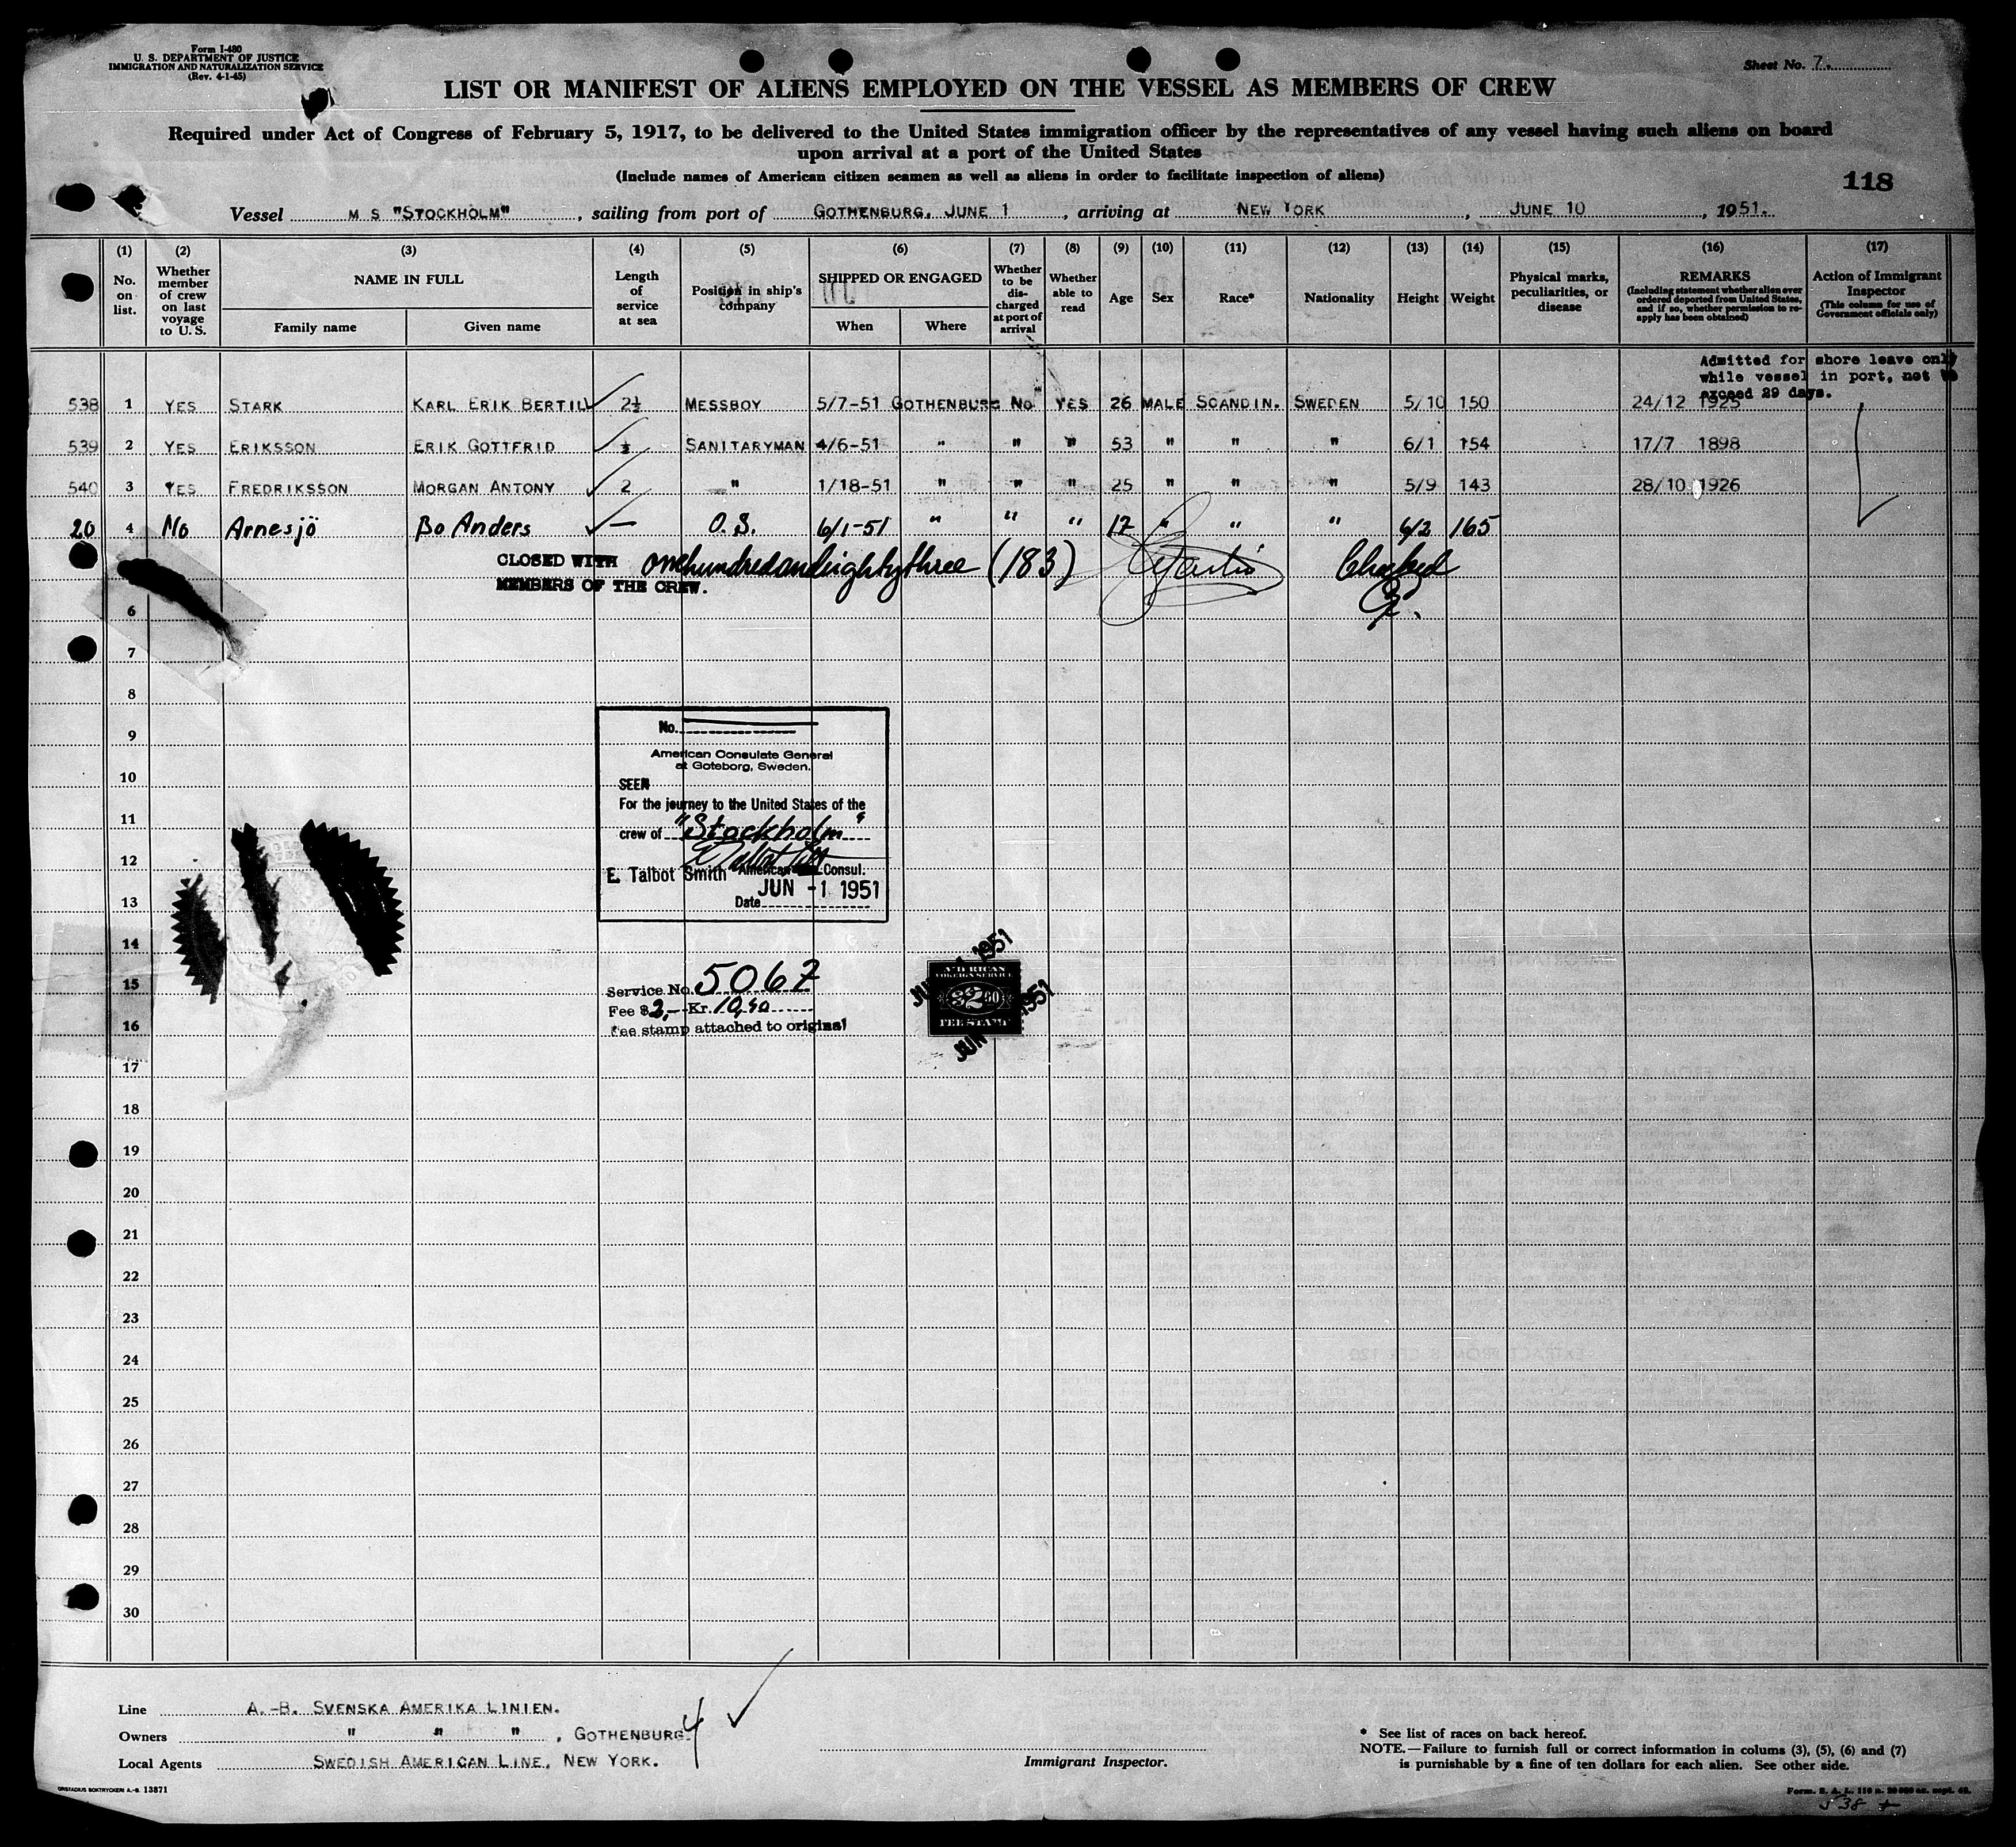 Form I-480
U. S. DEPARTMENT OF JUSTICE
IMMIGRATION AND NATURALIZATION SERVICE
(Rev. 4-1-45)
Sheet No. 7.
LIST OR MANIFEST OF ALIENS EMPLOYED ON THE VESSEL AS MEMBERS OF CREW
Required under Act of Congress of February 5, 1917, to be delivered to the United States immigration officer by the representatives of any vessel having such aliens on board
upon arrival at a port of the United States
(Include names of American citizen seamen as well as aliens in order to facilitate inspection of aliens)
118
Vessel M S "STOCKHOLM", sailing from port of GOTHENBURG, JUNE 1, arriving at NEW YORK, JUNE 10, 1951.
(1) (2) (3) (4) (5) (6) (7) (8) (9) (10) (11) (12) (13) (14) (15) (16) (17)
No. on list.
Whether member of crew on last voyage to U. S.
NAME IN FULL
Family name
Given name
Length of service at sea
Position in ship's company
SHIPPED OR ENGAGED
When
Where
Whether to be discharged at port of arrival
Whether able to read
Age
Sex
Race*
Nationality
Height
Weight
Physical marks, peculiarities, or disease
REMARKS
(Including statement whether alien ever ordered deported from United States, and if so, whether permission to reapply has been obtained)
Action of Immigrant Inspector
(This column for use of Government officials only)
Admitted for shore leave only
while vessel in port, not to
exceed 29 days.
538 1 YES STARK KARL ERIK BERTIL 2½ MESSBOY 5/7-51 GOTHENBURG NO YES 26 MALE SCANDIN. SWEDEN 5/10 150 24/12 1925
539 2 YES ERIKSSON ERIK GOTTFRID ½ SANITARYMAN 4/6-51 " " " 53 " " " 6/1 154 17/7 1898
540 3 YES FREDRIKSSON MORGAN ANTONY 2 " 1/18-51 " " " 25 " " " 5/9 143 28/10 1926
20 4 No Arnesjö Bo Anders — O.S. 6/1-51 " " " 17 " " " 6/2 165
CLOSED WITH onehundredandeightythree (183) Checked
MEMBERS OF THE CREW.
6
7
8
9
10
11
12
13
14
15
16
17
18
19
20
21
22
23
24
25
26
27
28
29
30
No.
American Consulate General
at Goteborg, Sweden.
SEEN
For the journey to the United States of the
crew of "Stockholm"
E. Talbot Smith American Consul.
Date JUN -1 1951
Service No. 5067
Fee $2,- Kr. 10,40
Fee stamp attached to original
JUN 1951
AMERICAN
FOREIGN SERVICE
FEE STAMP
JUN 1951
Line A.-B. SVENSKA AMERIKA LINIEN.
Owners " " " , GOTHENBURG.
4
Local Agents SWEDISH AMERICAN LINE, NEW YORK.
Immigrant Inspector.
* See list of races on back hereof.
NOTE.—Failure to furnish full or correct information in colums (3), (5), (6) and (7)
is purnishable by a fine of ten dollars for each alien. See other side.
ORSTADIUS BOKTRYCKERI A.-B. 13871
538 +